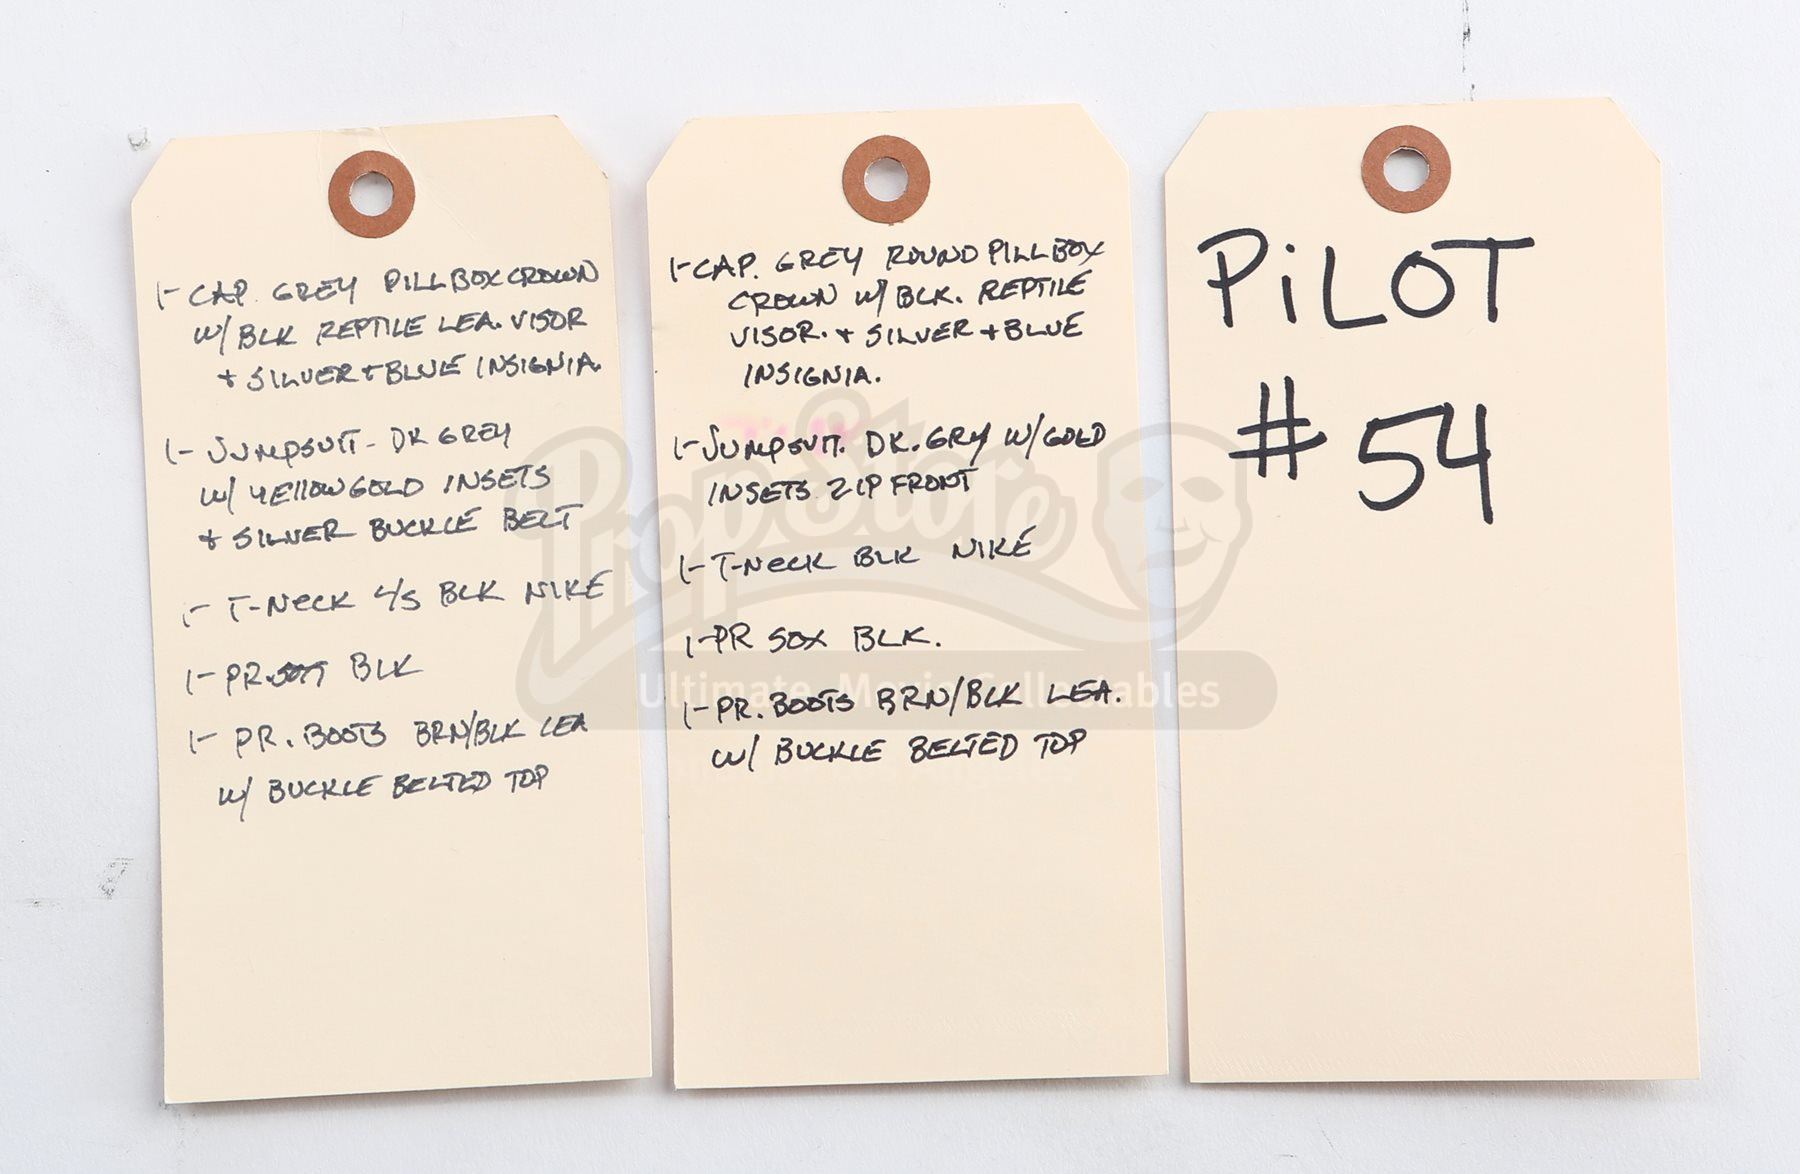 1- CAP. GREY PILLBOX CROWN
W/ BLK REPTILE LEA. VISOR
+ SILVER + BLUE INSIGNIA.
1- JUMPSUIT - DK GREY
W/ YELLOW GOLD INSETS
+ SILVER BUCKLE BELT
1- T-NECK L/S BLK NIKE
1- PR. BLK
1- PR. BOOTS BRN/BLK LEA
W/ BUCKLE BELTED TOP
1- CAP. GREY ROUND PILLBOX
CROWN W/ BLK. REPTILE
VISOR. + SILVER + BLUE
INSIGNIA.
1- JUMPSUIT. DK. GRY W/ GOLD
INSETS ZIP FRONT
1- T-NECK BLK NIKE
1- PR SOX BLK.
1- PR. BOOTS BRN/BLK LEA.
W/ BUCKLE BELTED TOP
PiLOT
# 54
Prop Store
Ultimate Movie Collectables